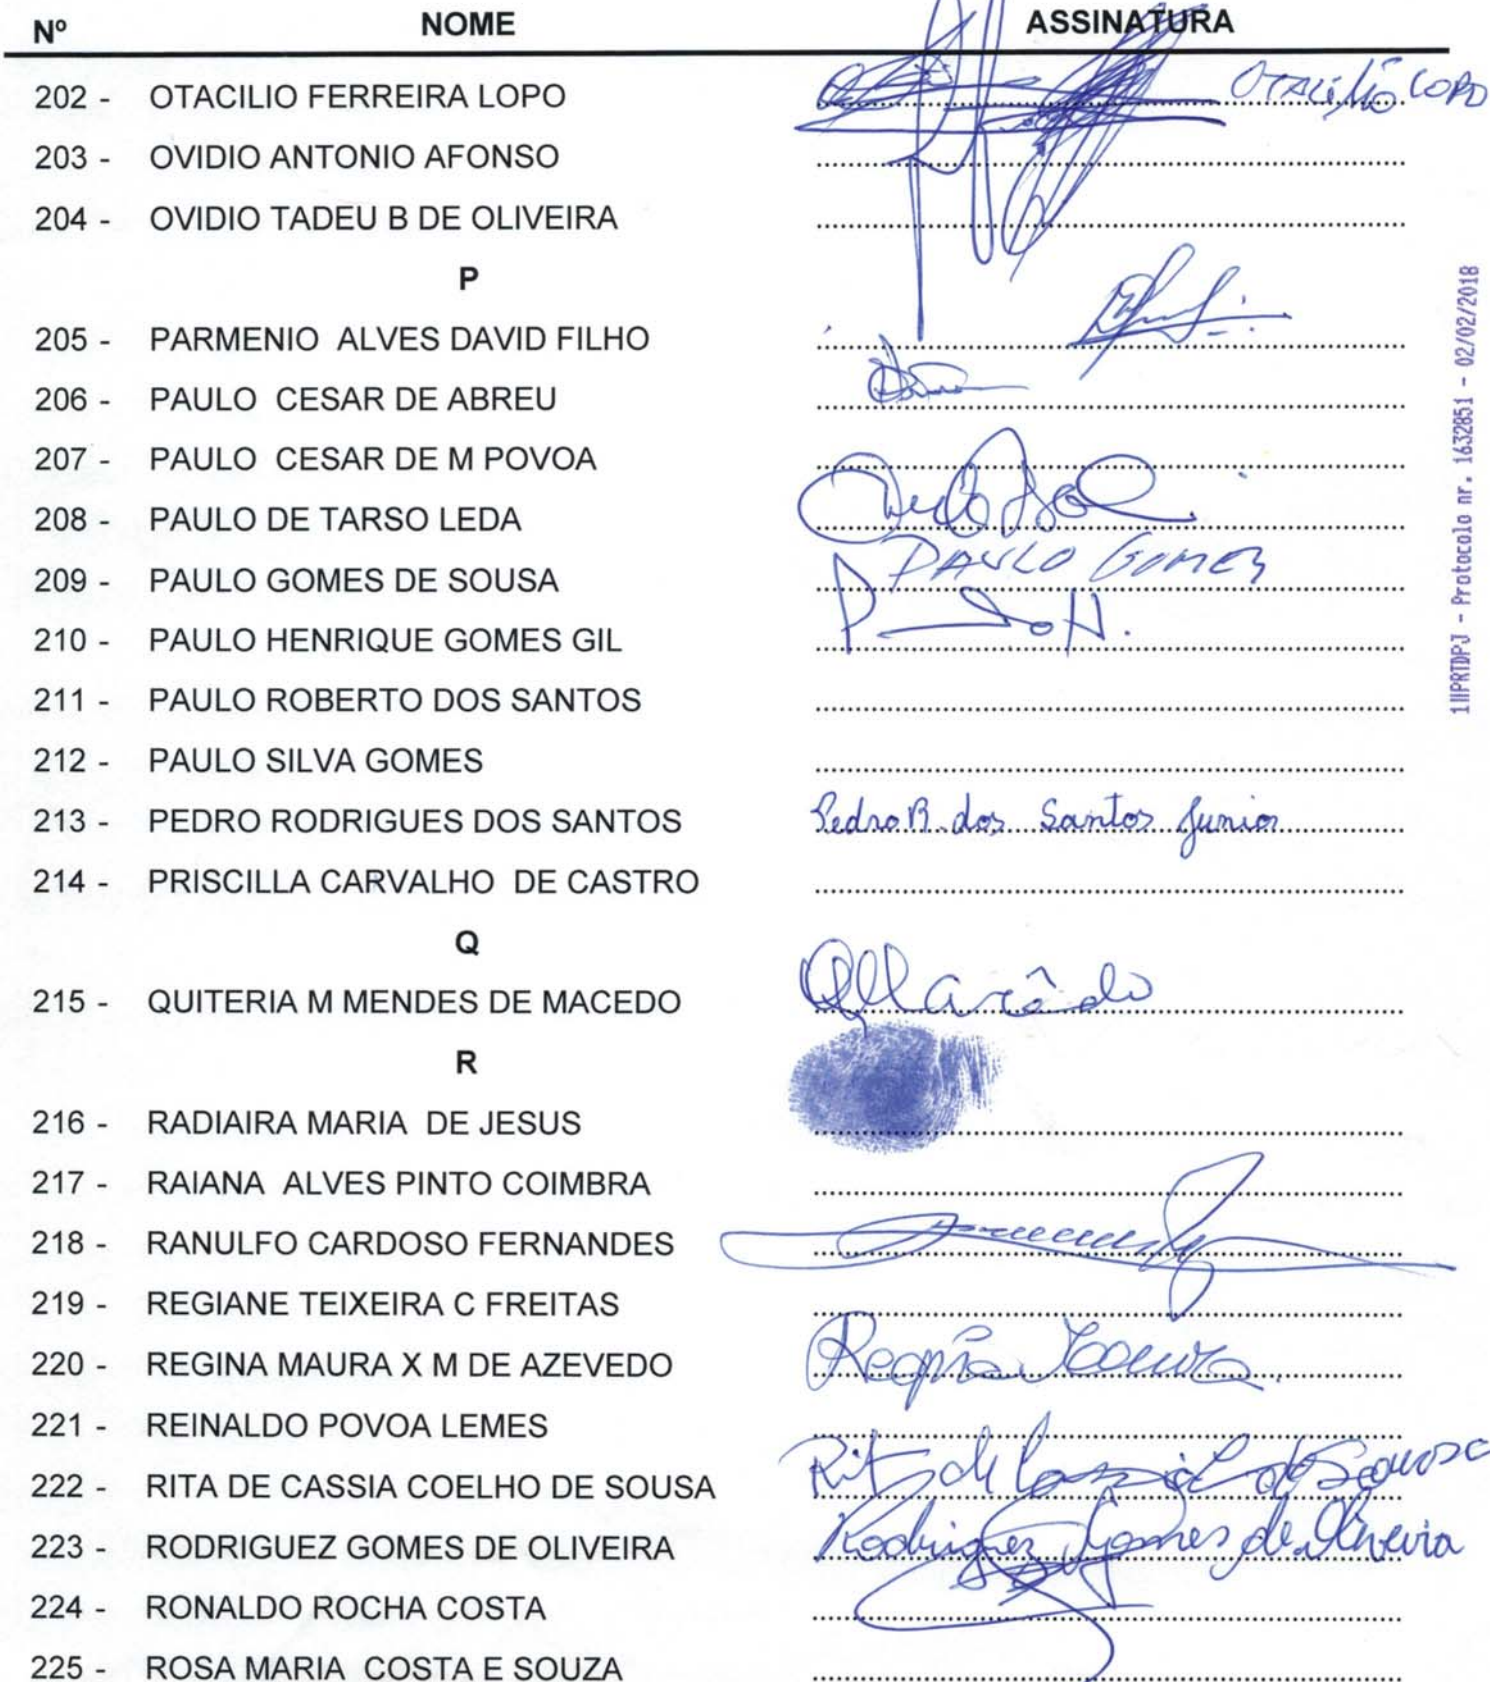 Nº NOME ASSINATURA
202 - OTACILIO FERREIRA LOPO OTACILIO LOPO
203 - OVIDIO ANTONIO AFONSO
204 - OVIDIO TADEU B DE OLIVEIRA
P
205 - PARMENIO ALVES DAVID FILHO
206 - PAULO CESAR DE ABREU
207 - PAULO CESAR DE M POVOA
208 - PAULO DE TARSO LEDA
209 - PAULO GOMES DE SOUSA PAULO GOMES
210 - PAULO HENRIQUE GOMES GIL
211 - PAULO ROBERTO DOS SANTOS
212 - PAULO SILVA GOMES
213 - PEDRO RODRIGUES DOS SANTOS Pedro R. dos Santos Junior
214 - PRISCILLA CARVALHO DE CASTRO
Q
215 - QUITERIA M MENDES DE MACEDO QMacêdo
R
216 - RADIAIRA MARIA DE JESUS
217 - RAIANA ALVES PINTO COIMBRA
218 - RANULFO CARDOSO FERNANDES
219 - REGIANE TEIXEIRA C FREITAS
220 - REGINA MAURA X M DE AZEVEDO Regina Moura
221 - REINALDO POVOA LEMES
222 - RITA DE CASSIA COELHO DE SOUSA Rita de Cassia C de Sousa
223 - RODRIGUEZ GOMES DE OLIVEIRA Rodriguez Gomes de Oliveira
224 - RONALDO ROCHA COSTA
225 - ROSA MARIA COSTA E SOUZA
Protocolo nr. 1632851 - 02/02/2018